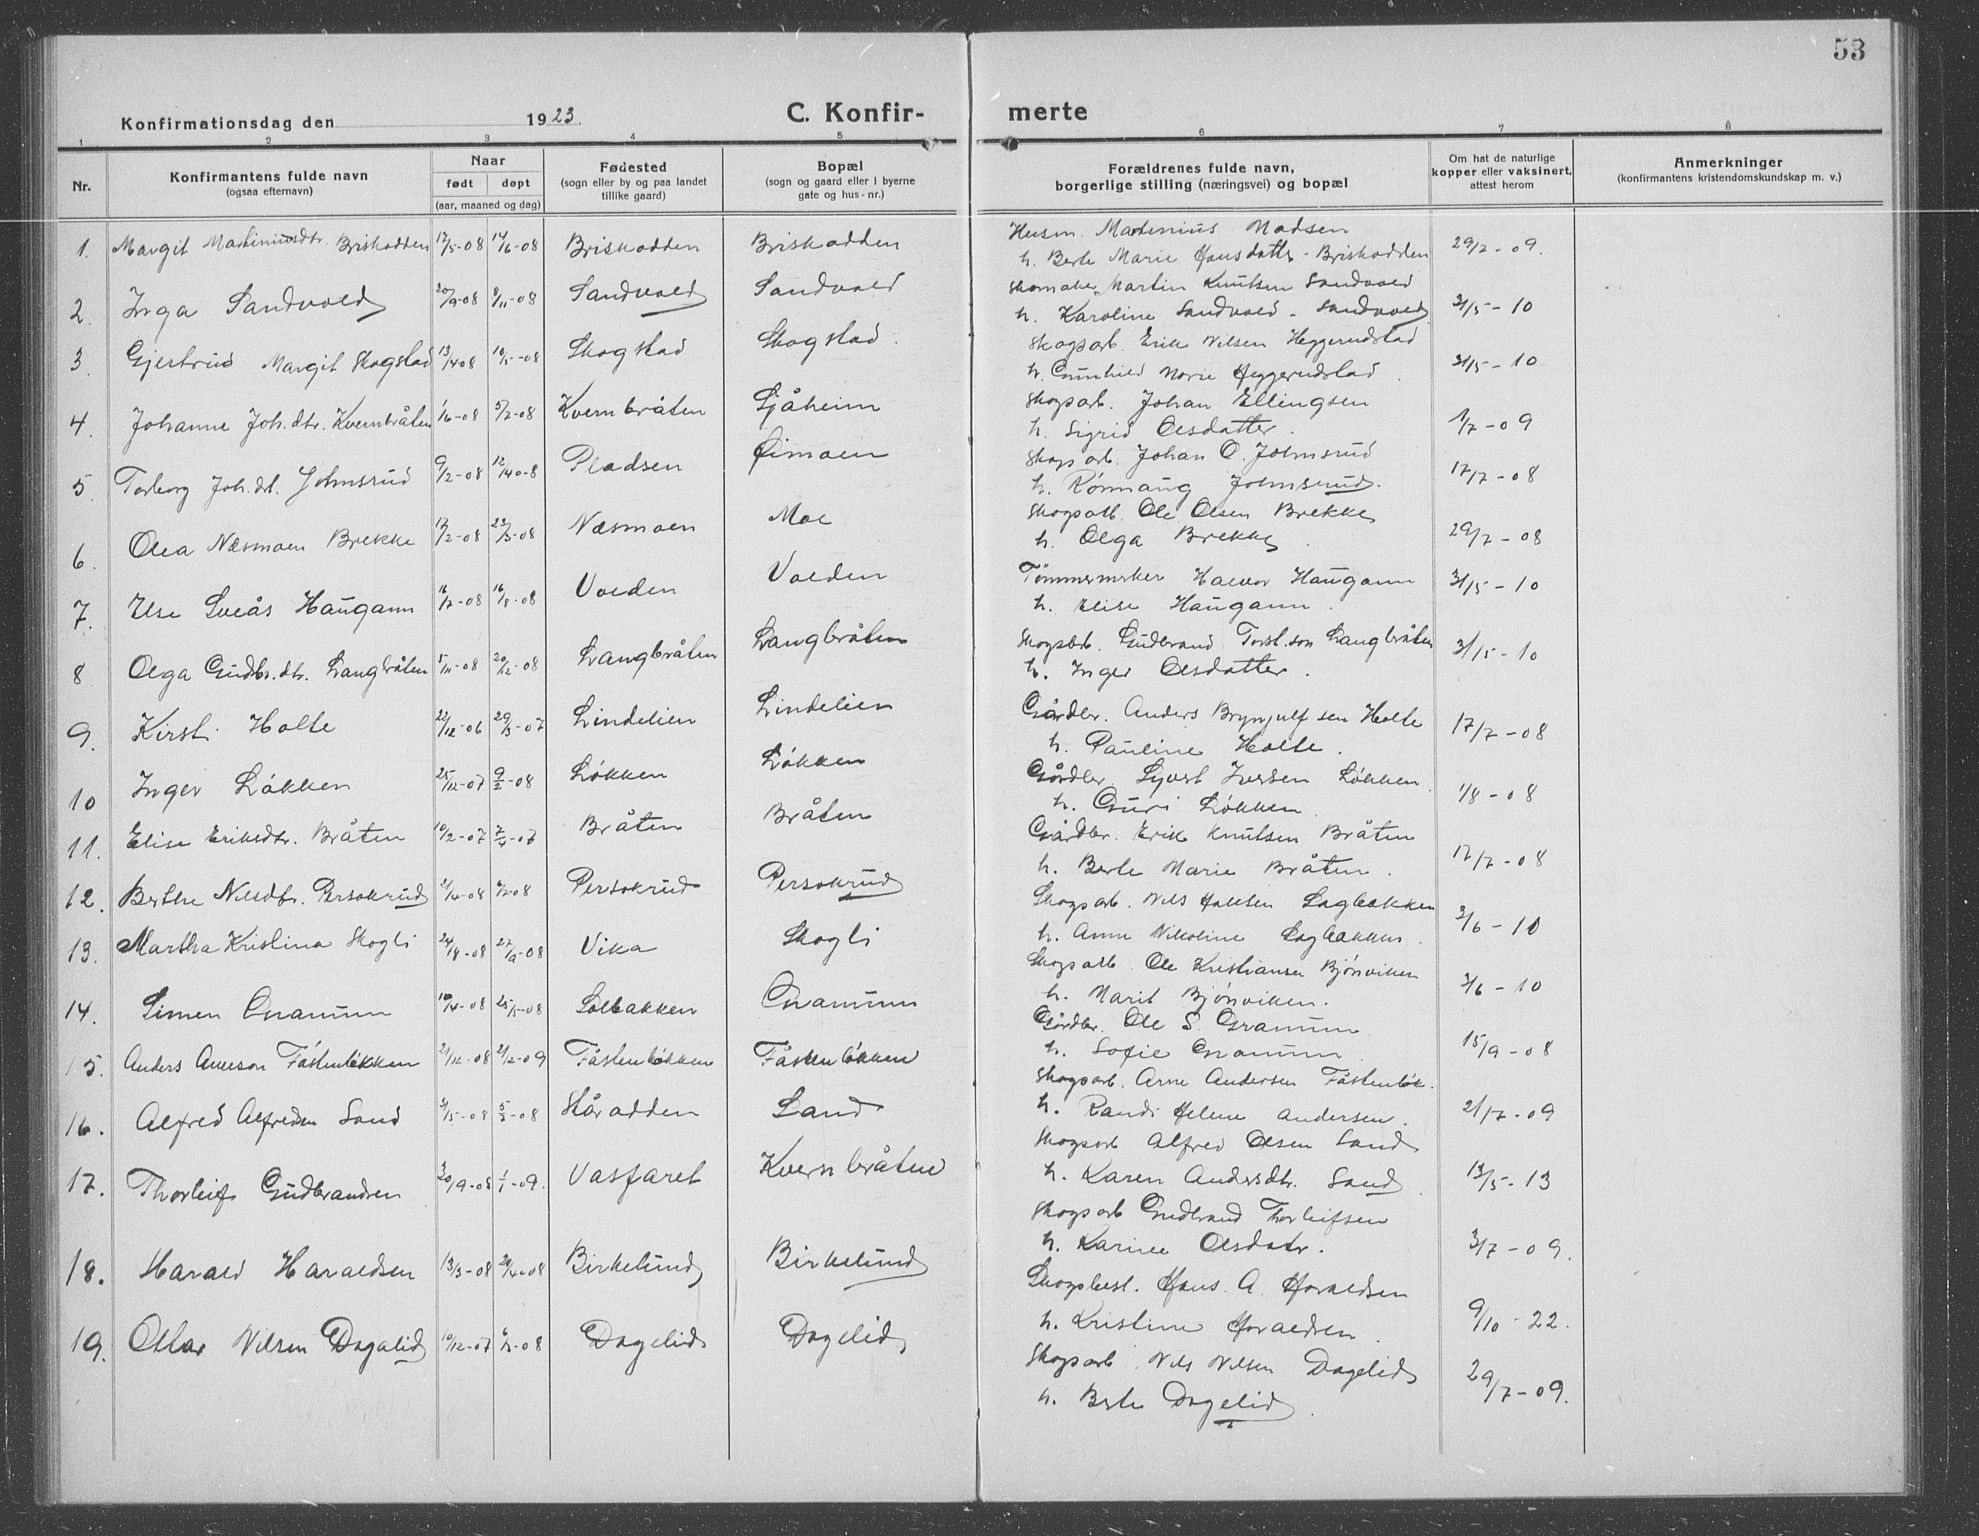 53
Konfirmationsdag den 1923.
C. Konfir-
merte
1 2 3 4 5 6 7 8
Nr.
Konfirmantens fulde navn
(ogsaa efternavn)
Naar
født døpt
(aar, maaned og dag)
Fødested
(sogn eller by og paa landet
tillike gaard)
Bopæl
(sogn og gaard eller i byerne
gate og hus-nr.)
Forældrenes fulde navn,
borgerlige stilling (næringsvei) og bopæl
Om hat de naturlige
kopper eller vaksinert,
attest herom
Anmerkninger
(konfirmantens kristendomskundskap m. v.)
1. Margit Martiniusdtr. Briskodden 17/5-08 14/6-08 Briskodden Briskodden
Husm. Martinius Madsen
h. Berte Marie Hansdatter - Briskodden 29/7-09.
2. Inga Sandvold 20/9-08 8/11-08 Sandvold Sandvold
Skomaker Martin Knutsen Sandvold
h. Karoline Sandvold - Sandvold 31/5-10
3. Gjertrud Margit Skogstad 13/4 08 10/5-08 Skogstad Skogstad.
Skogsarb. Erik Nilsen Heggerudstad
h. Gunhild Marie Heggerudstad. 31/5-10
4. Johanne Joh.dtr. Kvernbråten 1/6-08 5/7-08 Kvernbråten Sjåheim
Skogsarb. Johan Ellingsen
h. Sigrid Olsdatter. 1/7-09
5. Torborg Joh.dt. Johnsrud 9/2-08 12/4 0-8 Pladsen Øimoen
Skogsarb. Johan O. Johnsrud
h. Rønnaug Johnsrud. 17/7-08
6. Olea Næsmoen Brekke 17/2-08 22/3-08 Næsmoen Moe
Skogsarb. Ole Olsen Brekke
h. Olga Brekke. 29/7-08
7. Else Sveås Haugann 16/7-08 16/8-08 Volden Volden
Tømmermerker Halvor Haugann
h. Elise Haugann. 31/5-10
8 Olga Gudbr.dtr. Langbråten 5/11-08 20/12-08 Langbråten Langbråten
Skogsarb. Gudbrand Torst.son Langbråten
h. Inger Olsdatter. 31/5-10
9. Kirsti Holte 22/12-06 29/3-07 Lindelien Lindelien
Gårdbr. Anders Brynjulfsen Holte
h. Pauline Holte. 17/7-08
10 Inger Løkken 25/12-07 9/2-08 Løkken Løkken
Gårdbr. Syvert Iversen Løkken.
h. Guri Løkken 1/8-08
11. Elise Eriksdtr. Bråten 10/2-07 Bråten Bråten
Gårdbr. Erik Knutsen Bråten
h. Berte Marie Bråten. 17/7-08
12. Berthe Nilsdtr. Persokrud 2/4-08 Persokrud Persokrud
Skogsarb. Nils Halsten Sagbakken
h. Anne Nikoline Sagbakken. 3/6-10
13. Martha Kristina Skogli 24/8-08 27/9-08 Vika Skogli
Skogsarb. Ole Kristiansen Bjønviken
h. Marit Bjønviken. 3/6-10
14. Simen Granum 10/4-08 25/5-08 Solbakken Granum
Gårdbr. Ole S. Granum
h. Sofie Granum 15/9-08
15. Anders Arneson Fåstenløkken 21/12-08 2/2-09 Fåstenløkken Fåstenløkken
Skogsarb. Arne Andersen Fåstenløk.
h. Randi Helene Andersen. 21/7-09
16. Alfred Alfredsen Sand 3/5-08 Hårodden Sand
Skogsarb Alfred Olsen Sand
h. Karen Andersdtr. Sand. 13/5-13
17. Thorleif Gudbrandsen 30/9-08 1/1-09. Vasfaret Kvernbråten
Skogsarb Gudbrand Thorleifsen
h. Karine Olsdatr. 3/7-09.
18. Harald Haraldsen 13/3-08 20/4-08 Birkelund Birkelund
Skogsbest. Hans A. Haraldsen
h. Kristine Haraldsen. 9/10-22.
19. Ottar Nilsen Dagalid 10/12-07 Dagelid Dagelid
Skogsarb. Nils Nilsen Dagelid
h. Berte Dagelid. 29/7-09.